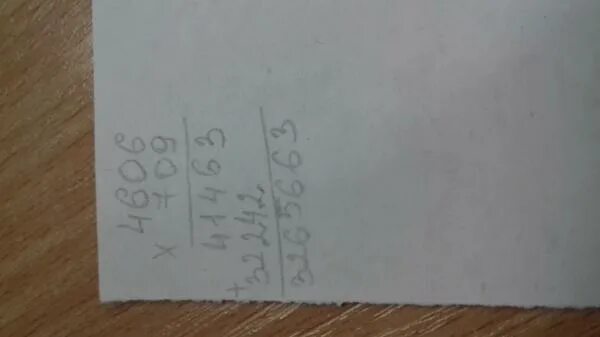 4606
× 709
41463
+ 32242
3265663